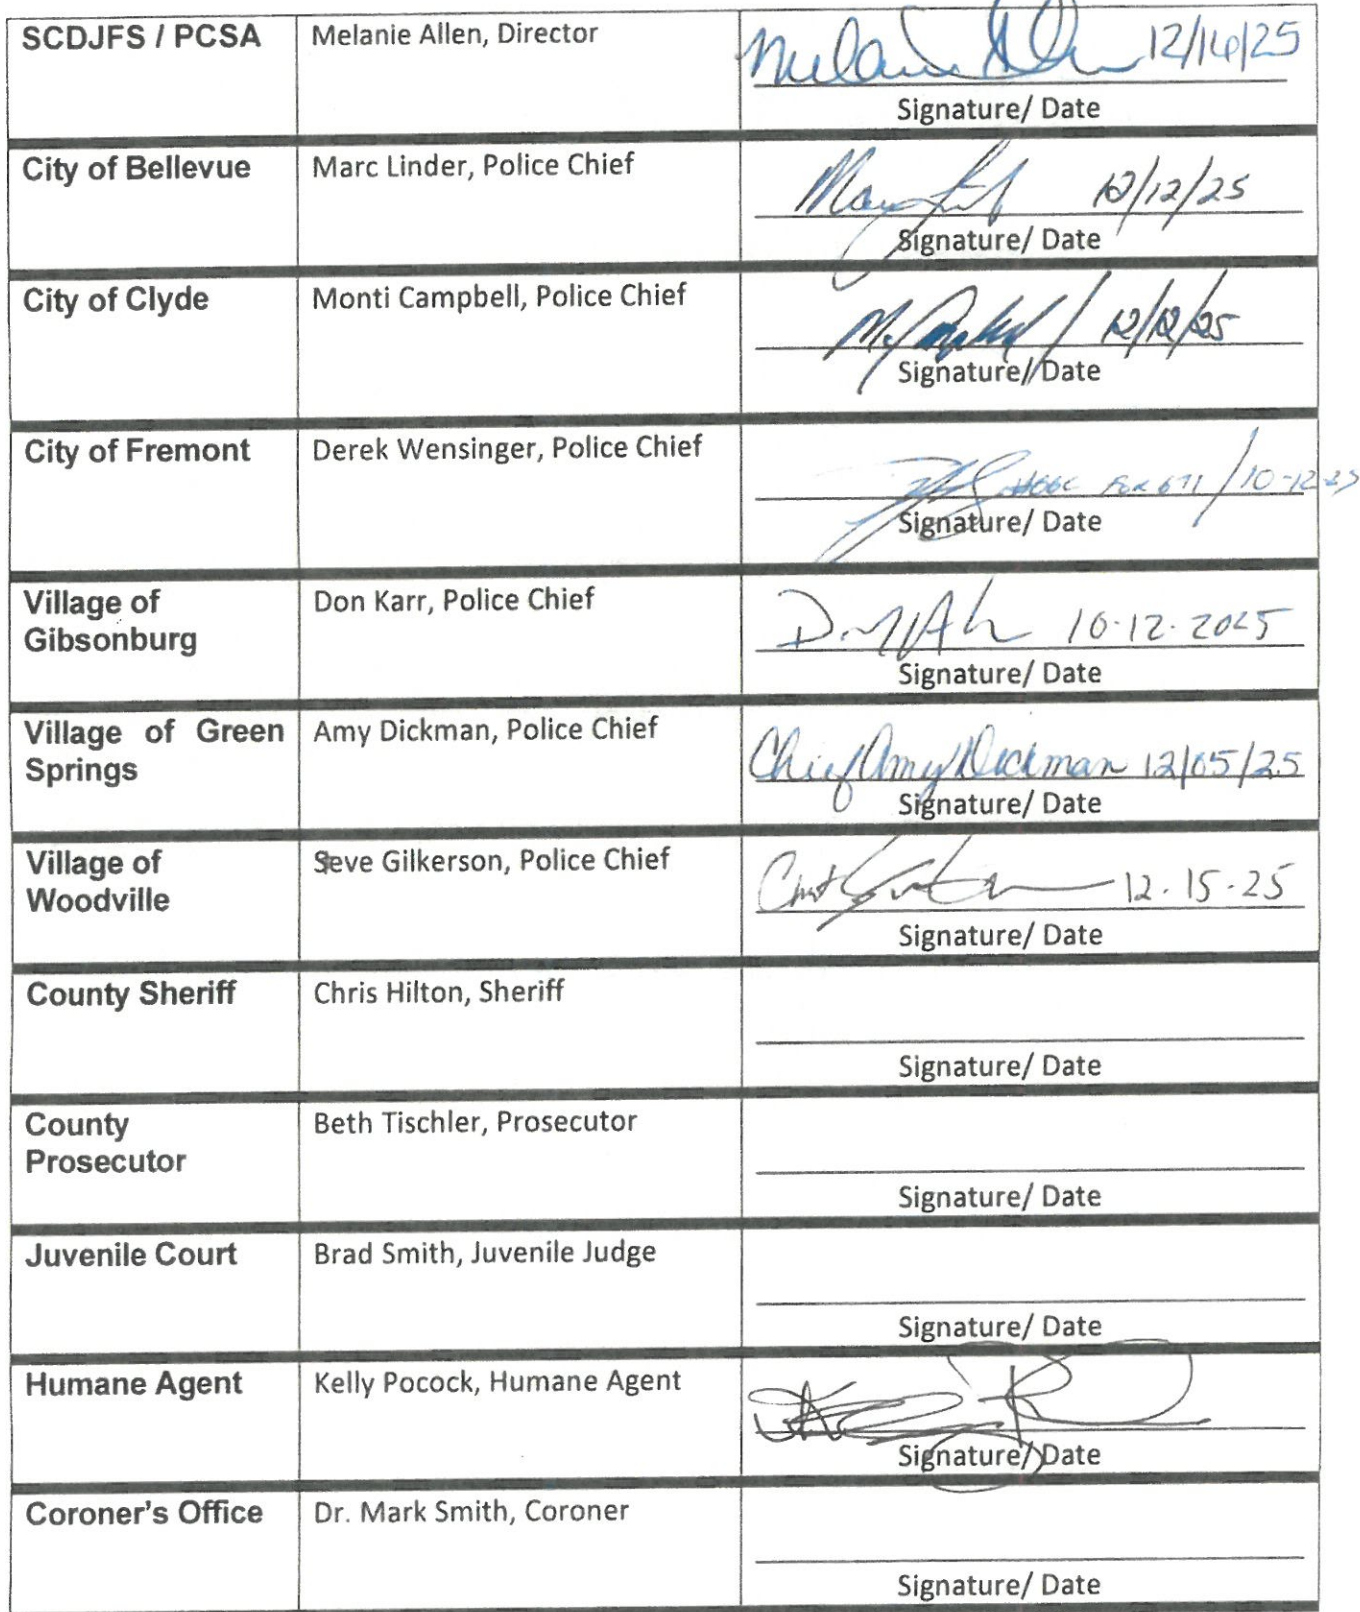 SCDJFS / PCSA
Melanie Allen, Director
Melanie Allen 12/16/25
Signature/ Date
City of Bellevue
Marc Linder, Police Chief
12/12/25
Signature/ Date
City of Clyde
Monti Campbell, Police Chief
12/12/25
Signature/ Date
City of Fremont
Derek Wensinger, Police Chief
10-12-25
Signature/ Date
Village of
Gibsonburg
Don Karr, Police Chief
10-12-2025
Signature/ Date
Village of Green
Springs
Amy Dickman, Police Chief
Chief Amy Dickman 12/05/25
Signature/ Date
Village of
Woodville
Seve Gilkerson, Police Chief
12-15-25
Signature/ Date
County Sheriff
Chris Hilton, Sheriff
Signature/ Date
County
Prosecutor
Beth Tischler, Prosecutor
Signature/ Date
Juvenile Court
Brad Smith, Juvenile Judge
Signature/ Date
Humane Agent
Kelly Pocock, Humane Agent
Signature/ Date
Coroner's Office
Dr. Mark Smith, Coroner
Signature/ Date